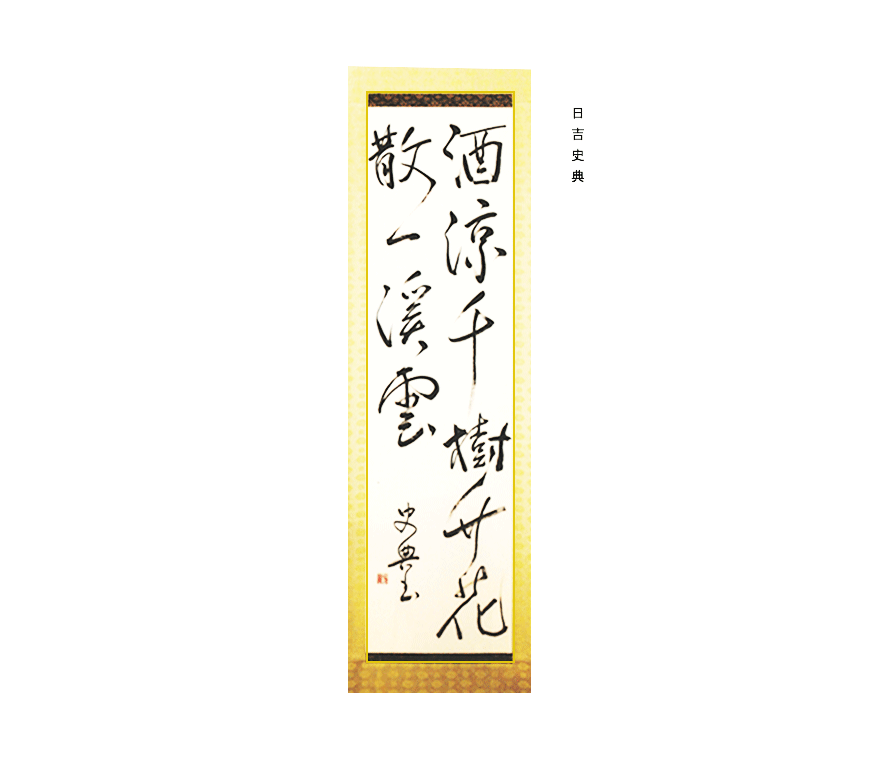 日吉史典
酒涼千樹花
散一溪雲
史典書